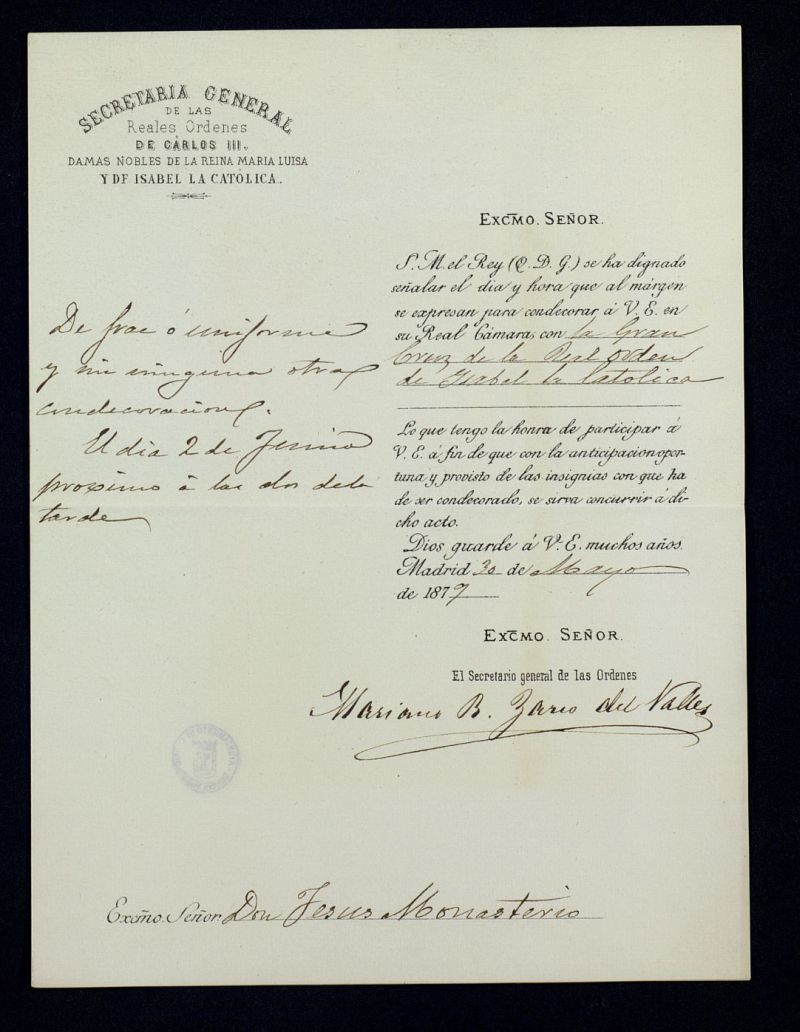 SECRETARIA GENERAL
DE LAS
Reales Ordenes
DE CÁRLOS III.
DAMAS NOBLES DE LA REINA MARIA LUISA
Y DE ISABEL LA CATÓLICA.
De frac ó uniforme
y sin ninguna otra
condecoracion.
El dia 2 de Junio
proximo á las dos de la
tarde
EXCMO. SEÑOR.
S. M. el Rey (Q. D. G.) se ha dignado
señalar el dia y hora que al márgen
se expresan para condecorar á V. E. en
su Real Cámara, con la Gran
Cruz de la Real orden
de Isabel la Catolica
Lo que tengo la honra de participar á
V. E. á fin de que con la anticipacion opor-
tuna y provisto de las insignias con que ha
de ser condecorado, se sirva concurrir á di-
cho acto.
Dios guarde á V. E. muchos años.
Madrid 30 de Mayo
de 1877
EXCMO. SEÑOR.
El Secretario general de las Ordenes
Mariano B. Zarco del Valle
Excmo. Señor Don Jesus Monasterio